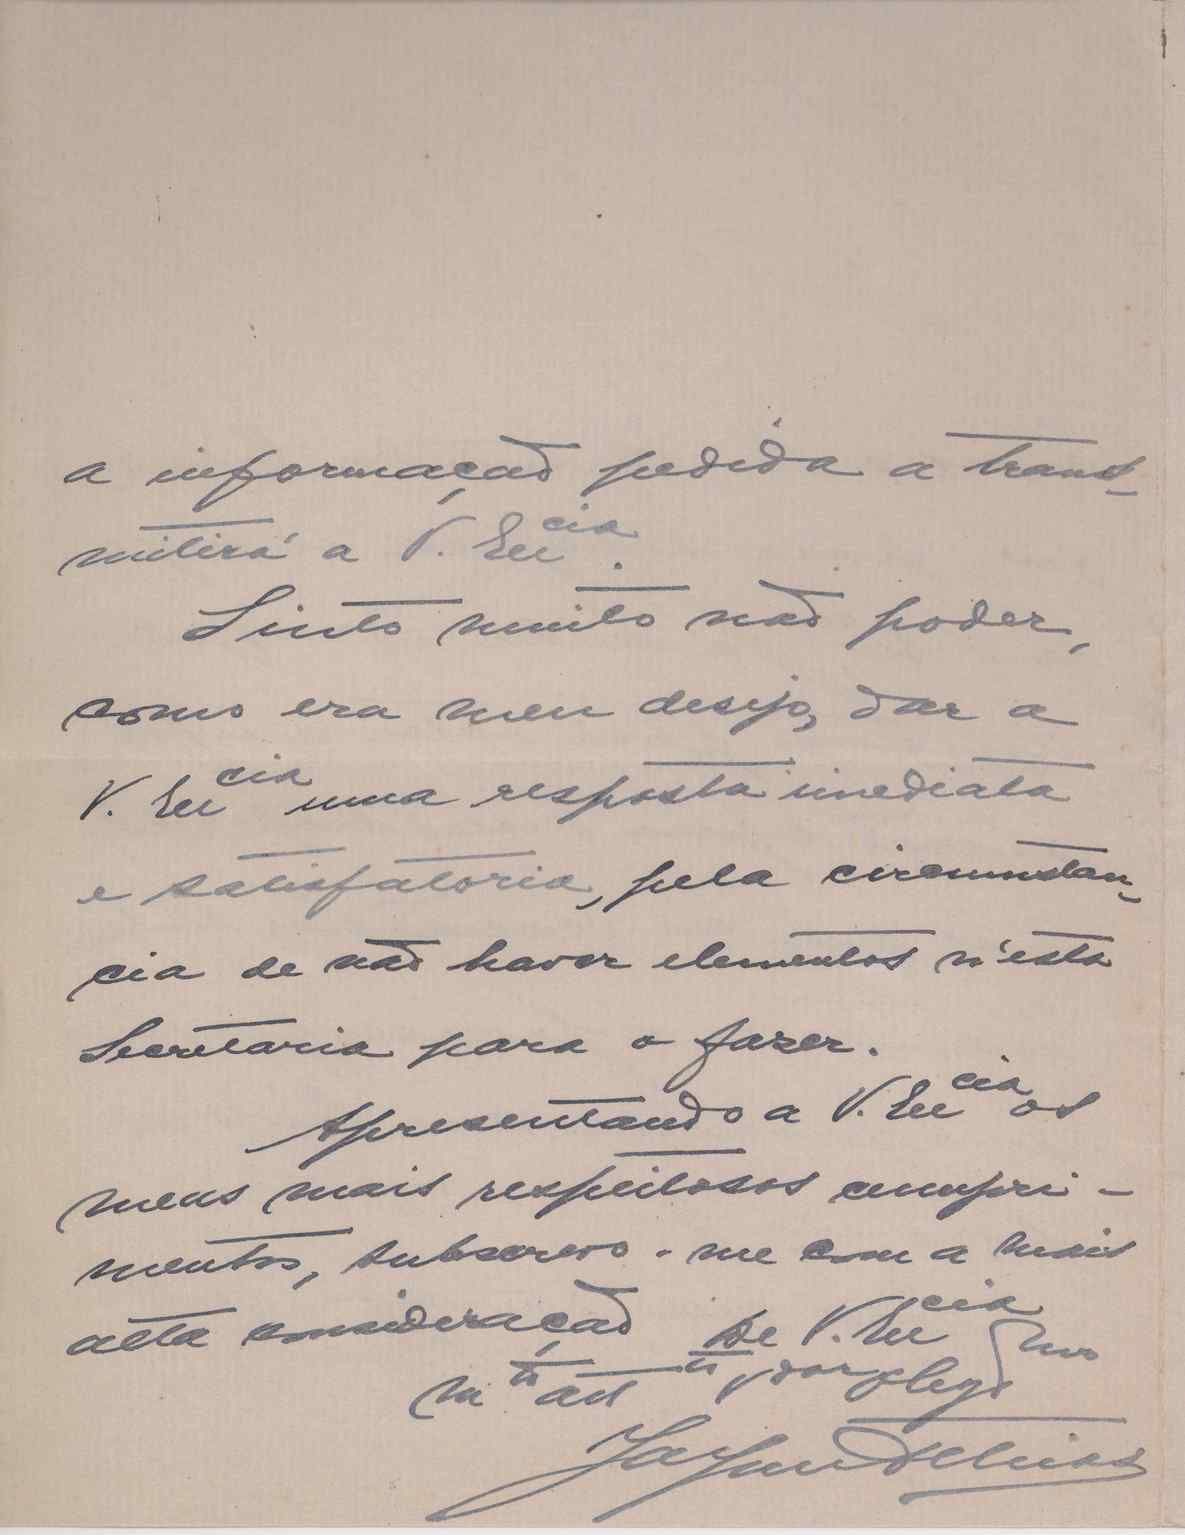 a informação pedida a trans-
mitirá a V. Excia.
Sinto muito não poder,
como era meu desejo, dar a
V. Excia uma resposta imediata
e satisfatoria, pela circumstan-
cia de não haver elementos n'esta
Secretaria para o fazer.
Apresentando a V. Excia os
meus mais respeitosos cumpri-
mentos, subscrevo-me com a mais
alta consideração De V. Excia
m.to att.to v.dor